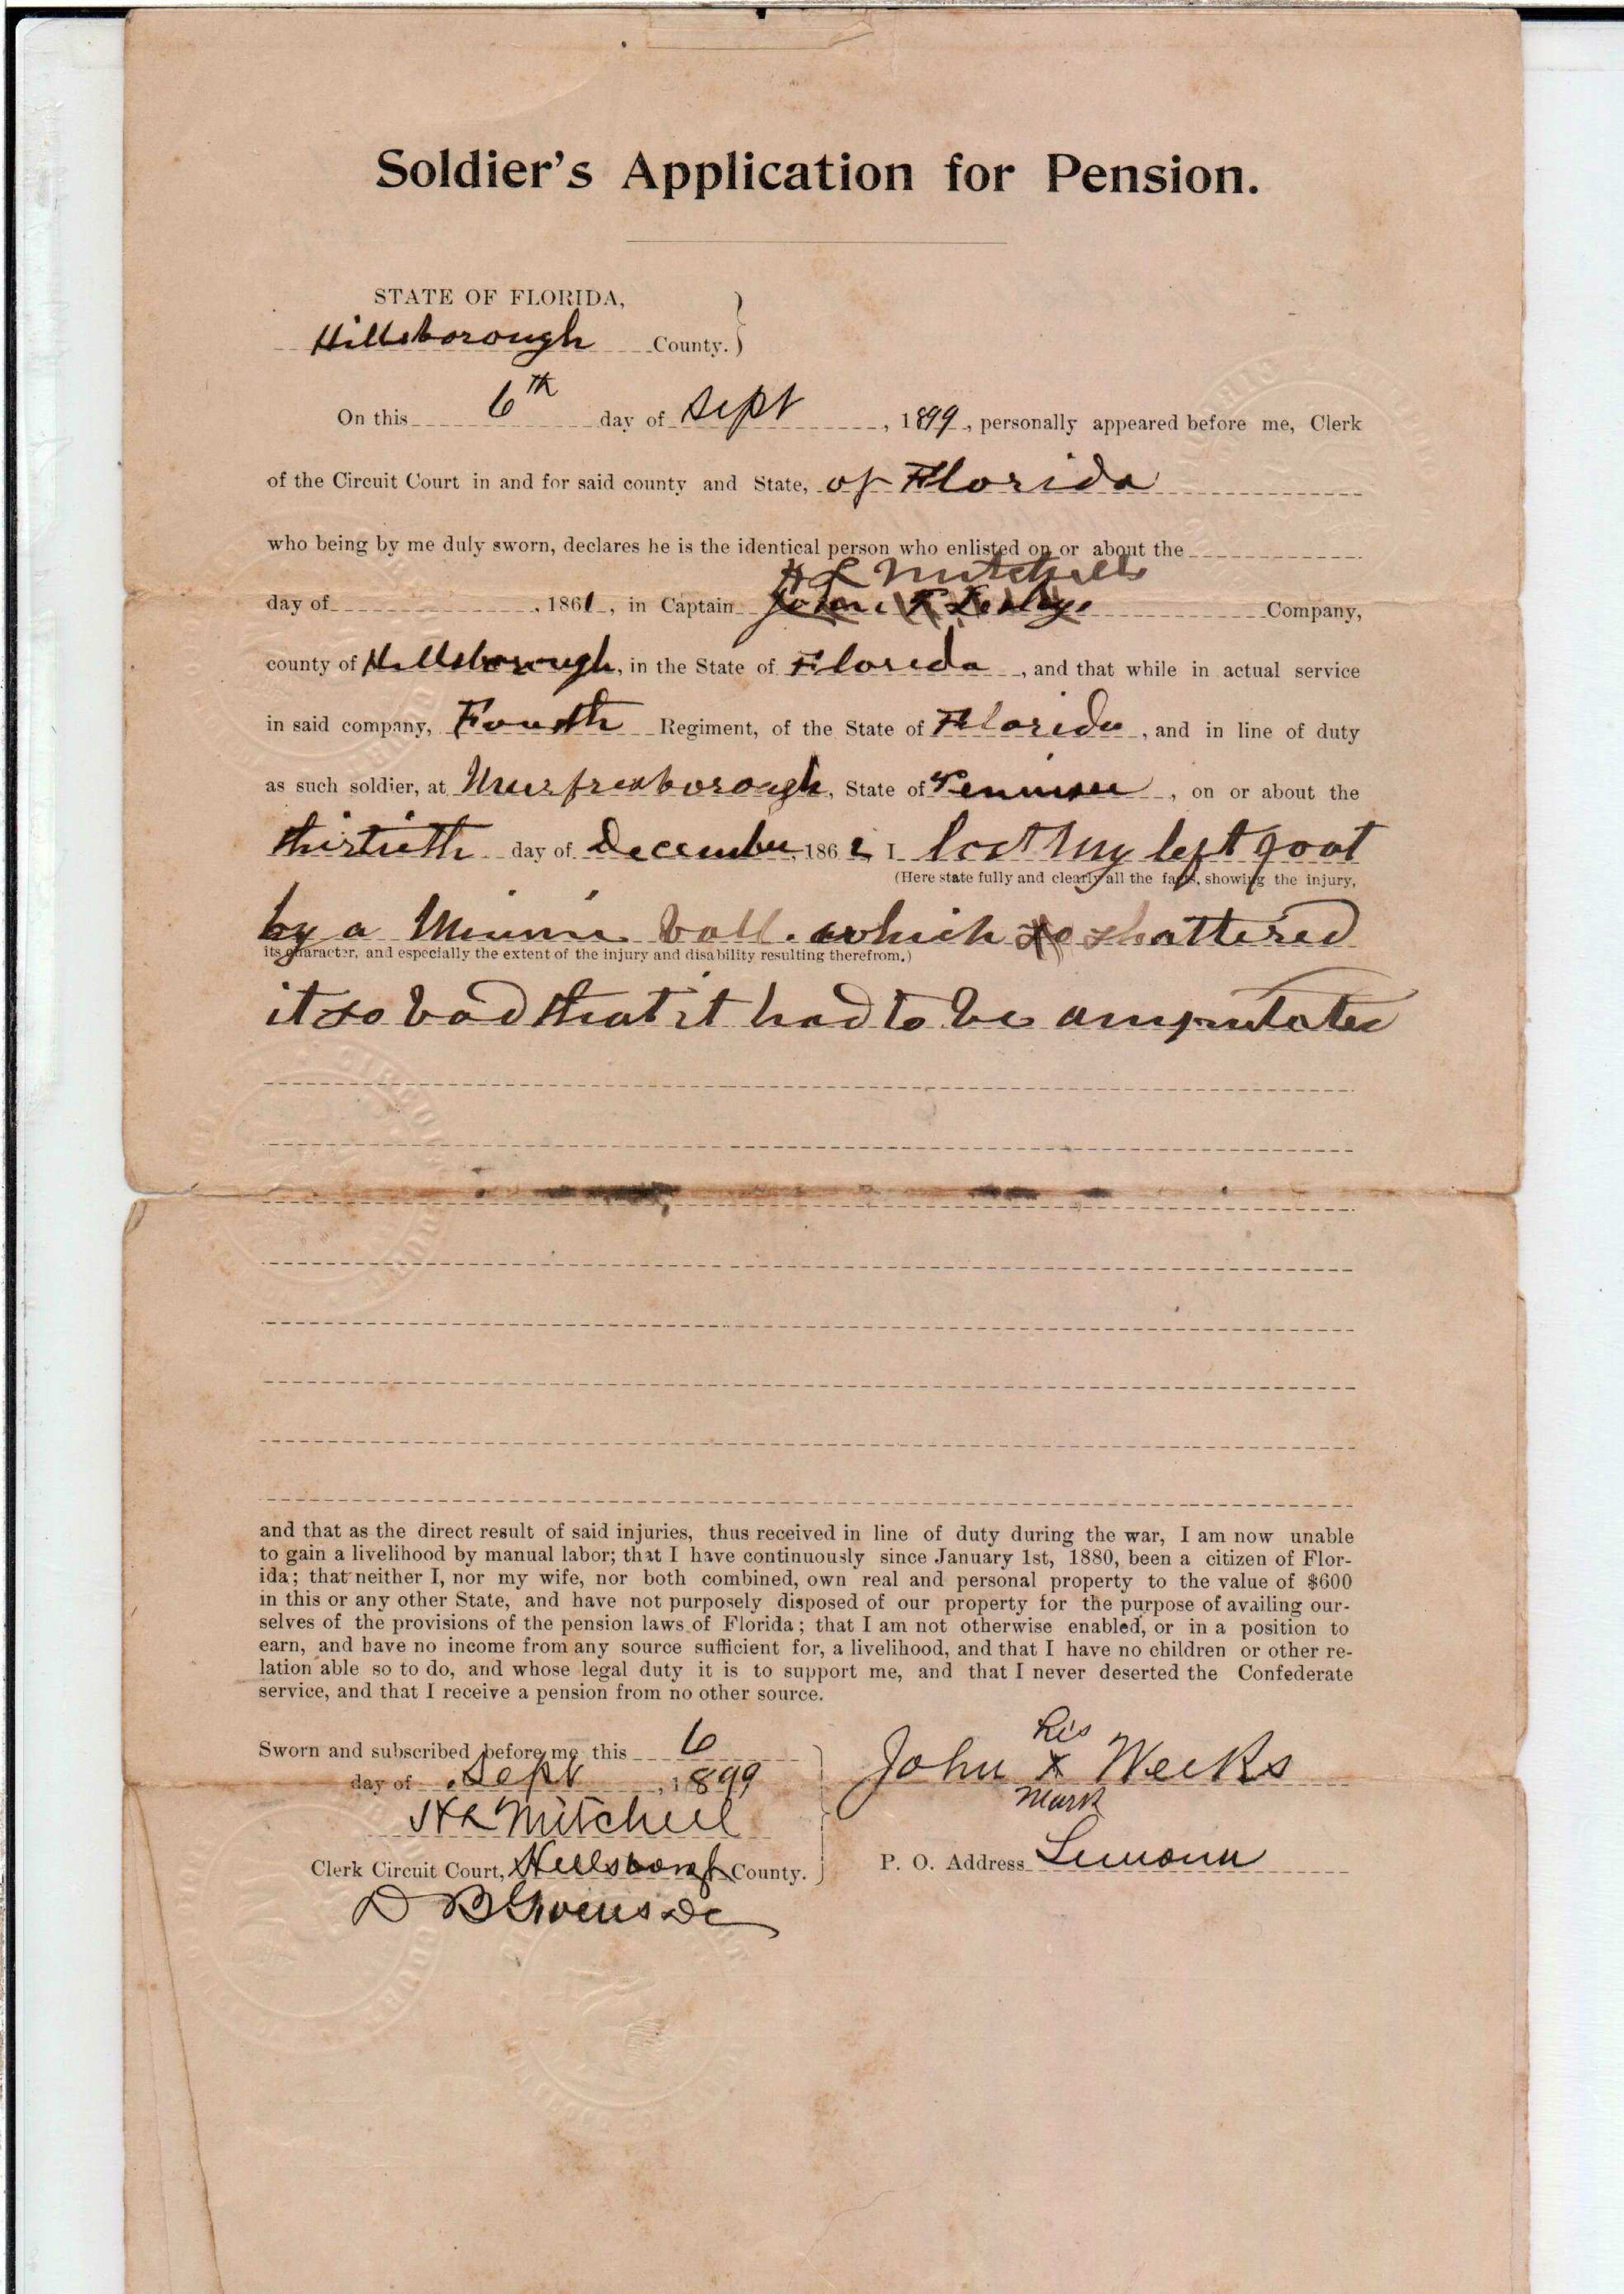 Soldier's Application for Pension.
STATE OF FLORIDA,
Hillsborough County.
On this 6th day of Sept, 1899, personally appeared before me, Clerk
of the Circuit Court in and for said county and State, of Florida
who being by me duly sworn, declares he is the identical person who enlisted on or about the
H L Mitchells
day of , 1861, in Captain John Company,
county of Hillsborough, in the State of Florida, and that while in actual service
in said company, Fourth Regiment, of the State of Florida, and in line of duty
as such soldier, at Murfresborough, State of Tennissee, on or about the
thirtieth day of December, 1862 I lost my left foot
(Here state fully and clearly all the facts, showing the injury,
by a Minnie ball. which so shattered
its character, and especially the extent of the injury and disability resulting therefrom.)
it so bad that it had to be amputated
and that as the direct result of said injuries, thus received in line of duty during the war, I am now unable
to gain a livelihood by manual labor; that I have continuously since January 1st, 1880, been a citizen of Flor-
ida; that neither I, nor my wife, nor both combined, own real and personal property to the value of $600
in this or any other State, and have not purposely disposed of our property for the purpose of availing our-
selves of the provisions of the pension laws of Florida; that I am not otherwise enabled, or in a position to
earn, and have no income from any source sufficient for, a livelihood, and that I have no children or other re-
lation able so to do, and whose legal duty it is to support me, and that I never deserted the Confederate
service, and that I receive a pension from no other source.
Sworn and subscribed before me this 6
day of Sept, 1899
H L Mitchell
Clerk Circuit Court, Hillsboro County.
D B Givens DC
his
John X Weeks
mark
P. O. Address